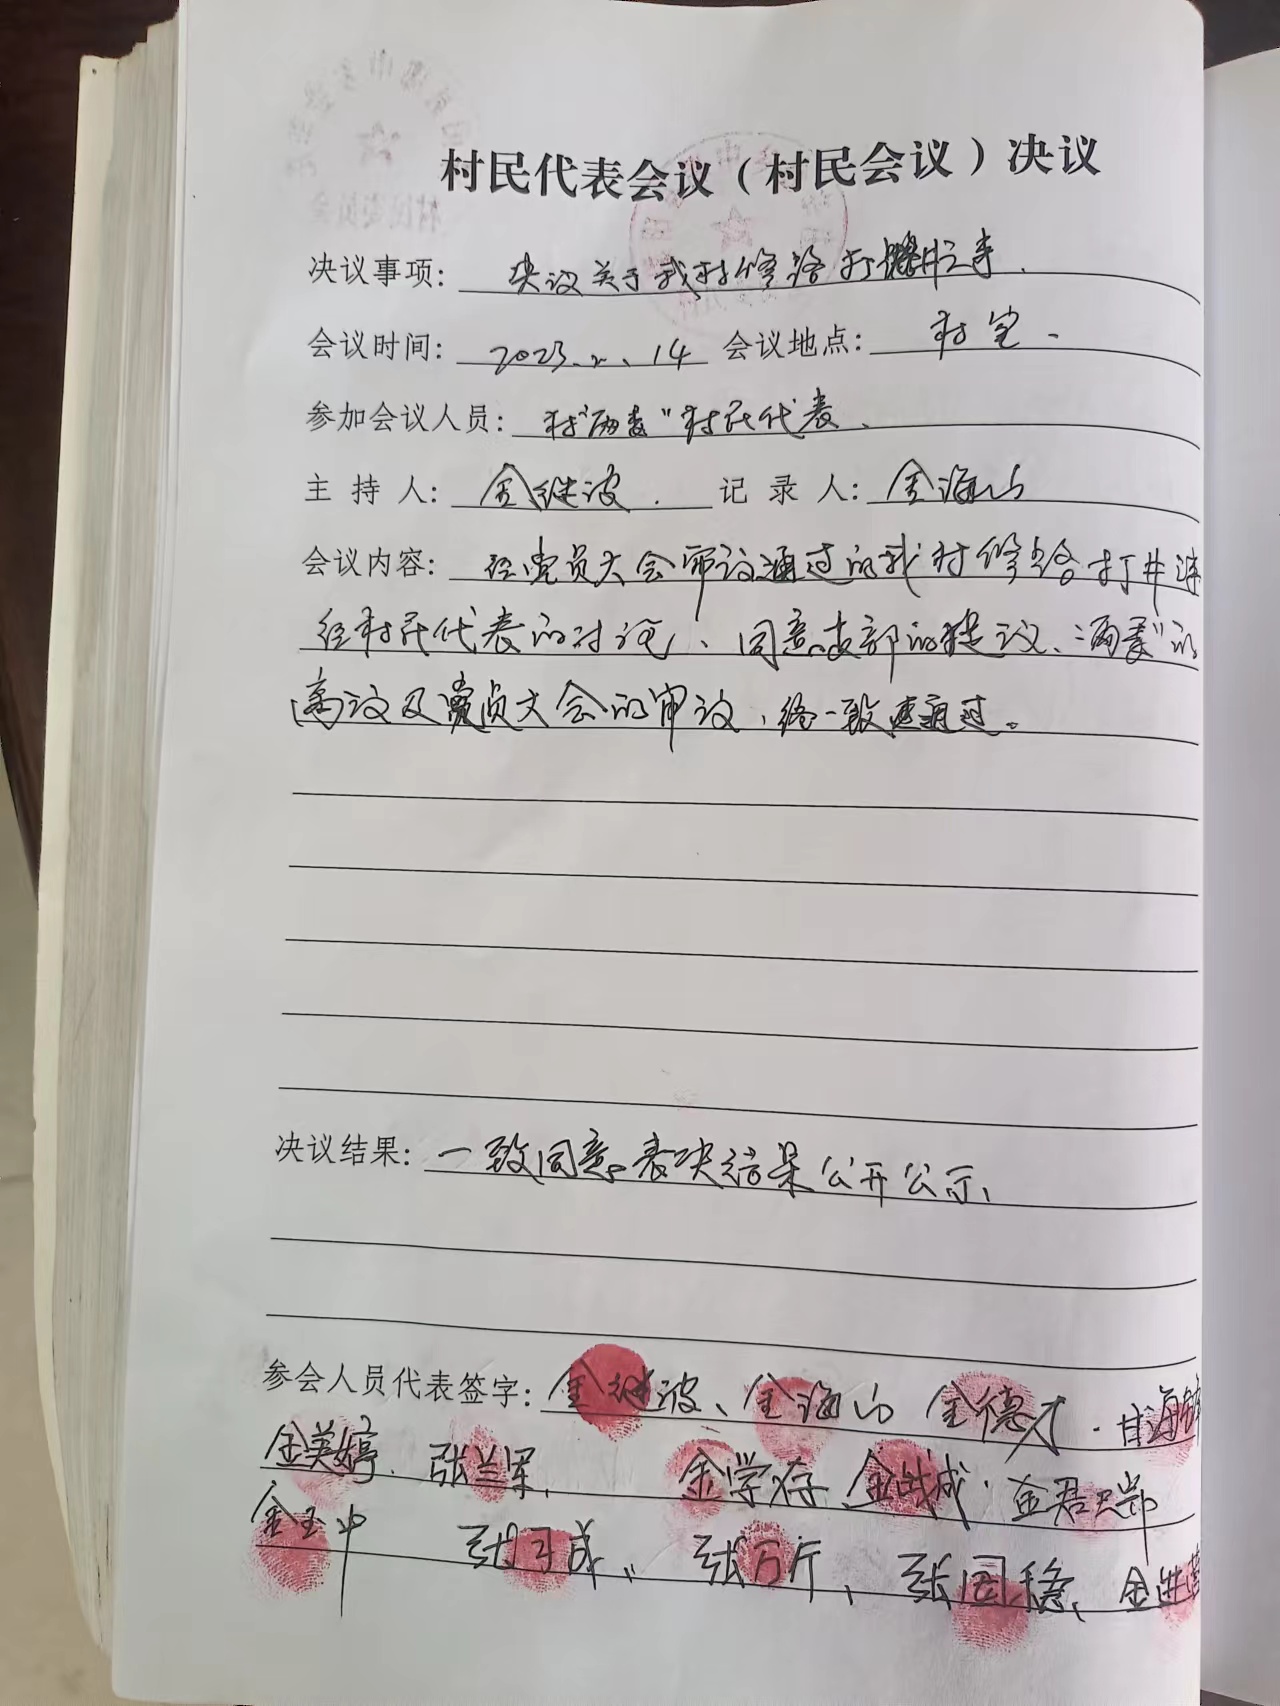 村民代表会议（村民会议）决议
决议事项： 决议关于我村修路打井之事.
会议时间： 2023.2.14 会议地点： 村室.
参加会议人员： 村"两委"村民代表、
主 持 人： 金继波. 记 录 人： 金海山
会议内容： 经党员大会审议通过的我村修路打井
经村民代表的讨论、同意支部的提议、"两委"的
商议及党员大会的审议,终一致通过。
决议结果： 一致同意表决结果公开公示、
参会人员代表签字： 金继波、金海山 金德才.甘海
金美婷.张兰军, 金学存 金战成.金君
金玉中 张子成、张万斤、张国稳、金进
村民委员会